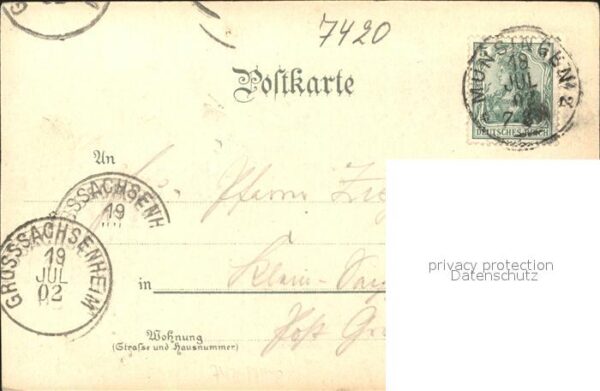 7420
Postkarte
MÜNSINGEN
19
JUL
02
DEUTSCHES REICH
An
Pfarrer
GROSSSACHSENH
19
GROSSSACHSENHEIM
19
JUL
02
in
Klein-
Post
Wohnung
(Strasse und Hausnummer)
privacy protection
Datenschutz